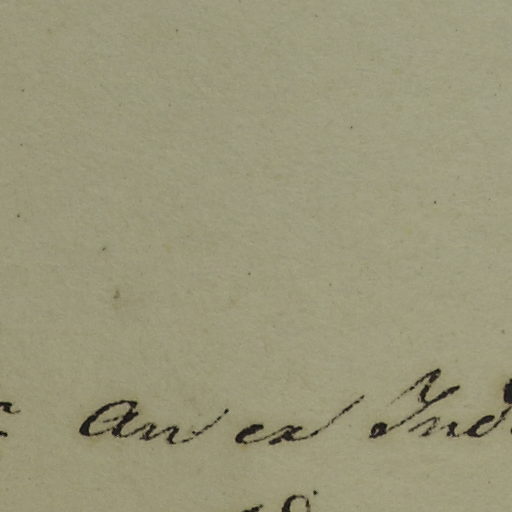 An ex Ind